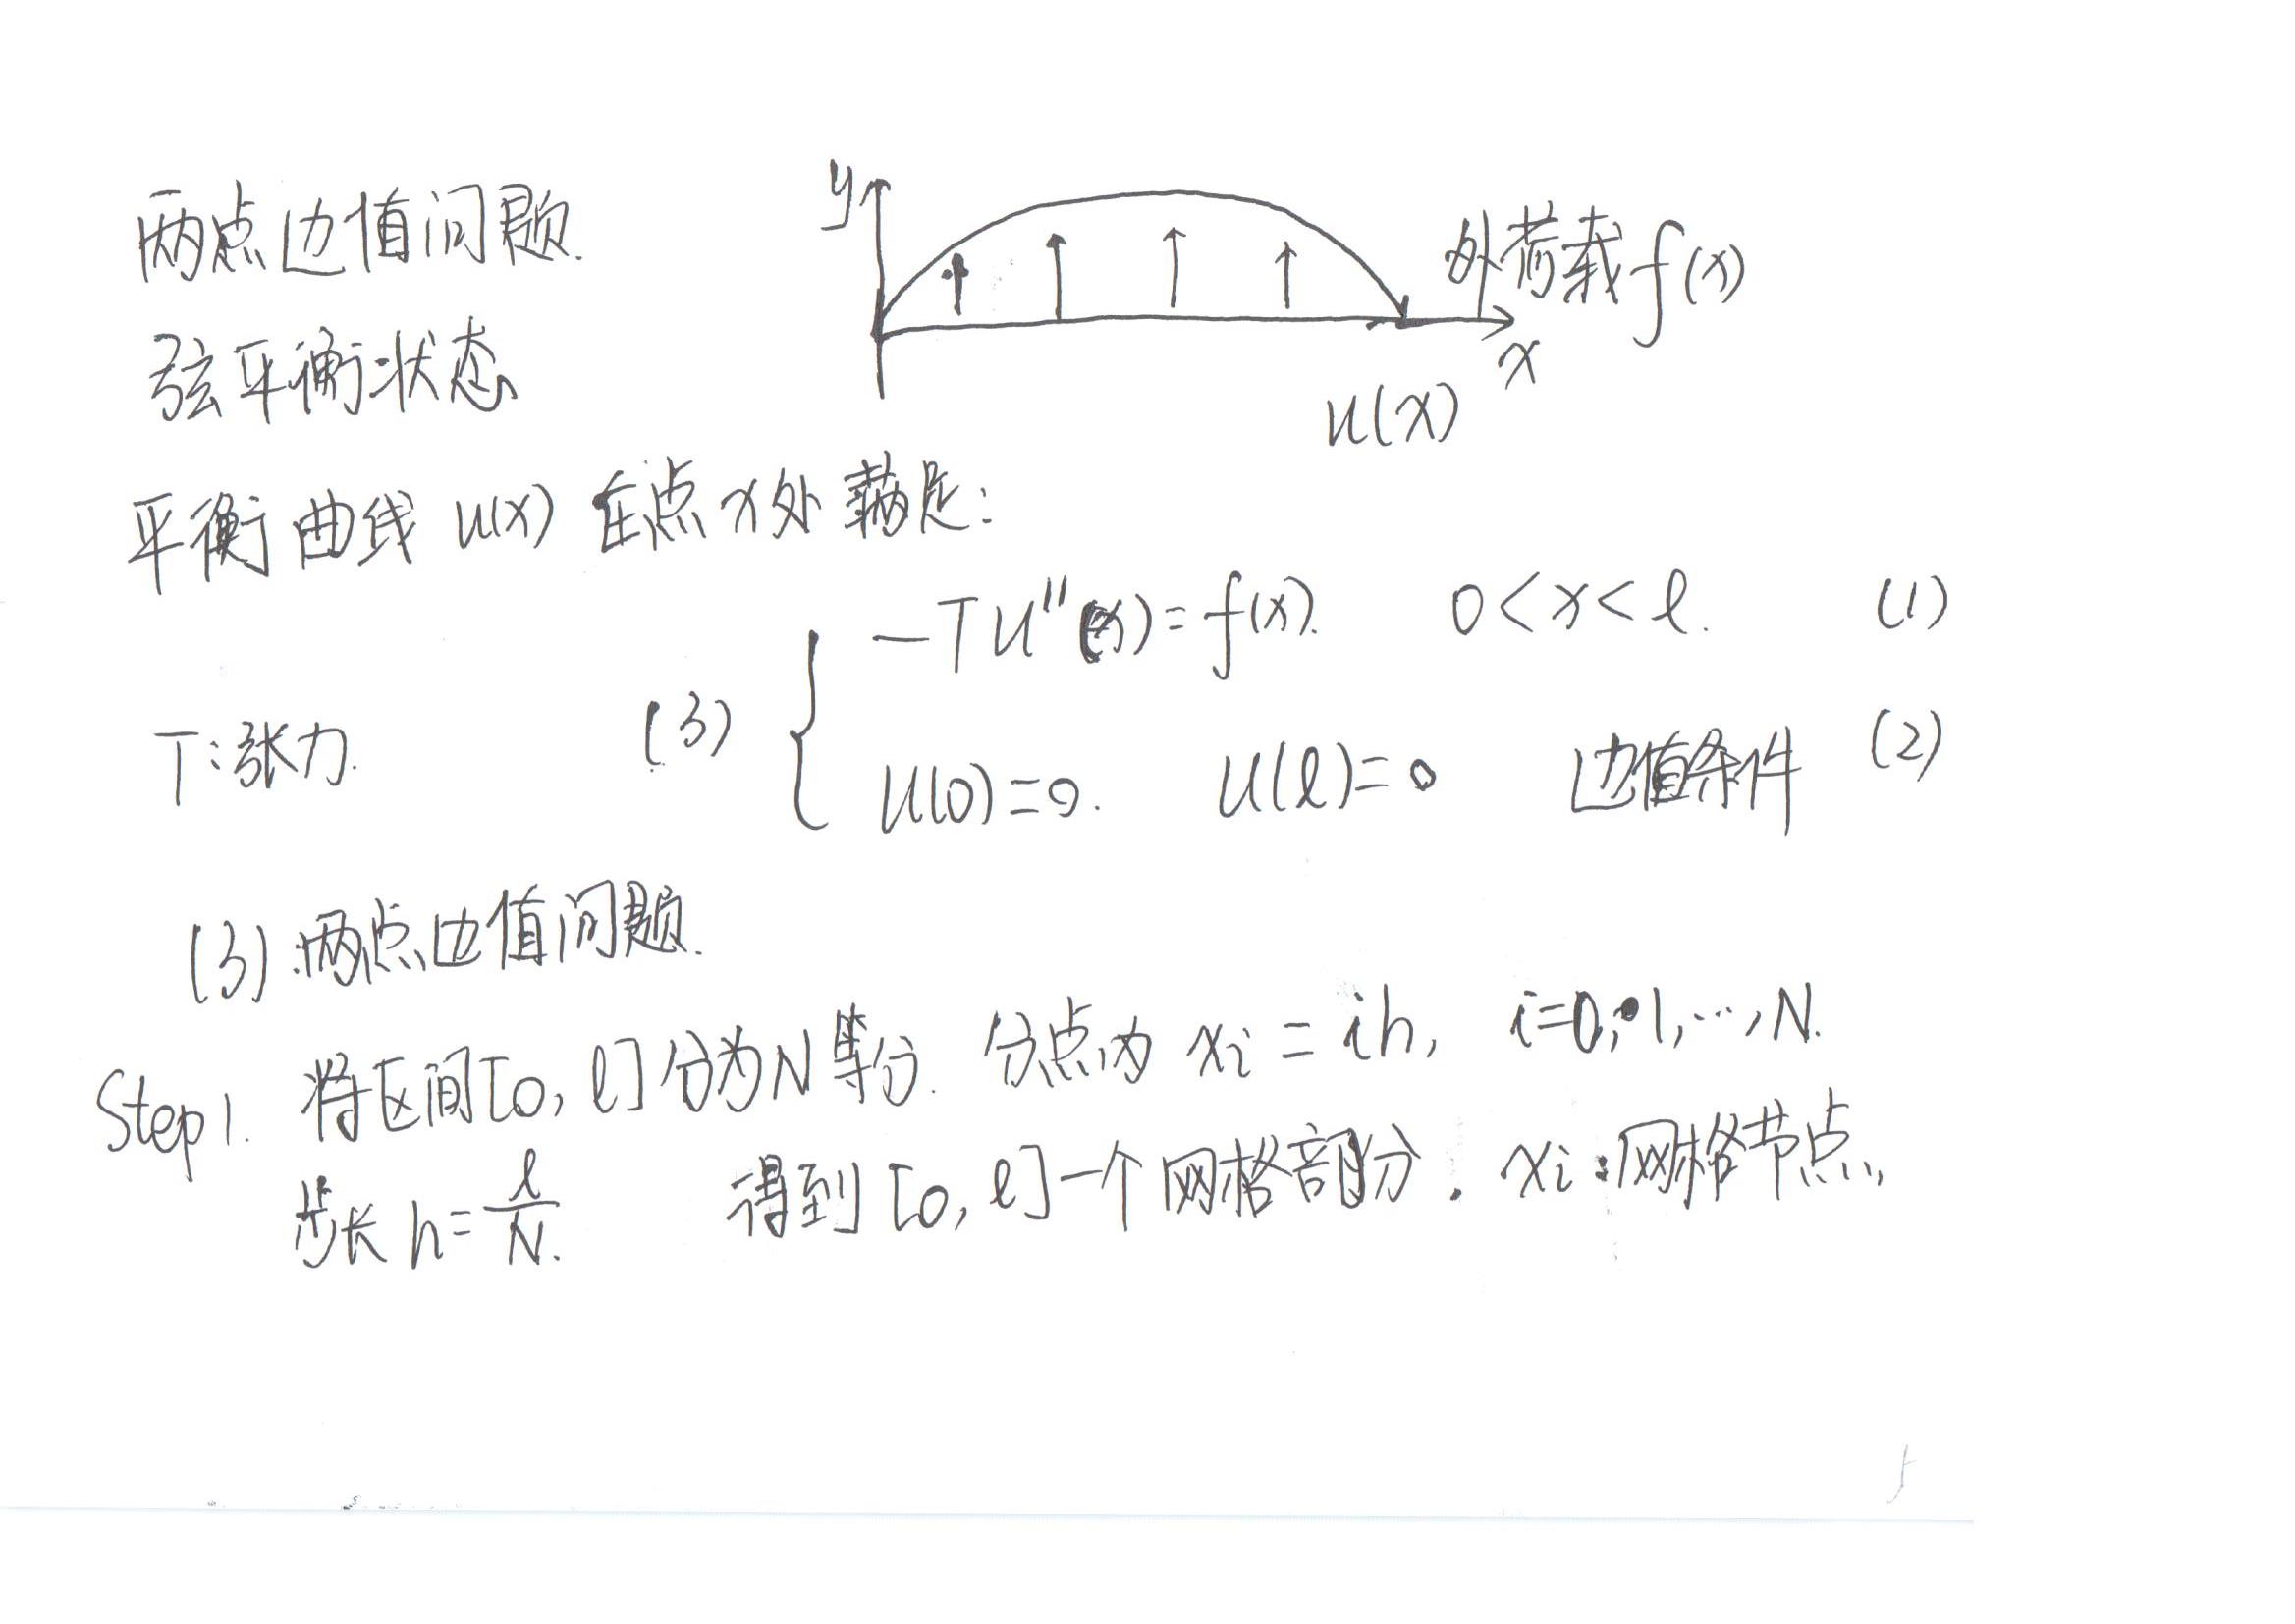 两点边值问题.
y
外荷载 f(x)
x
u(x)
弦平衡状态
平衡曲线 u(x) 在点 x 处满足:
-Tu''(x)=f(x). 0<x<l. (1)
T:张力. (3)
u(0)=0. u(l)=0 边值条件 (2)
(3):两点边值问题.
Step1. 将区间[0, l]分为N等分. 分点为 xi = ih, i=0,1,…,N.
步长 h=l/N. 得到[0, l]一个网格部分. xi:网格节点.